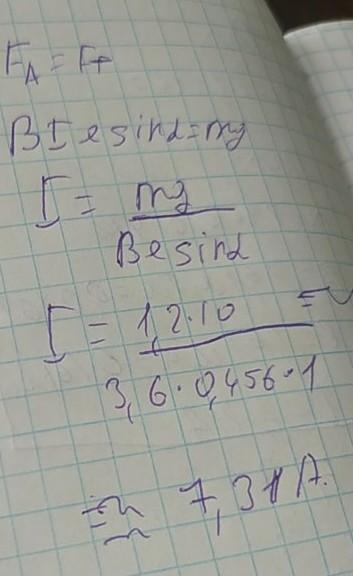 F_A = F_т
BIl sinα = mg
I = mg
Bl sinα
I = 1,2·10 ≈
3,6·0,456·1
≈ 7,31 A.